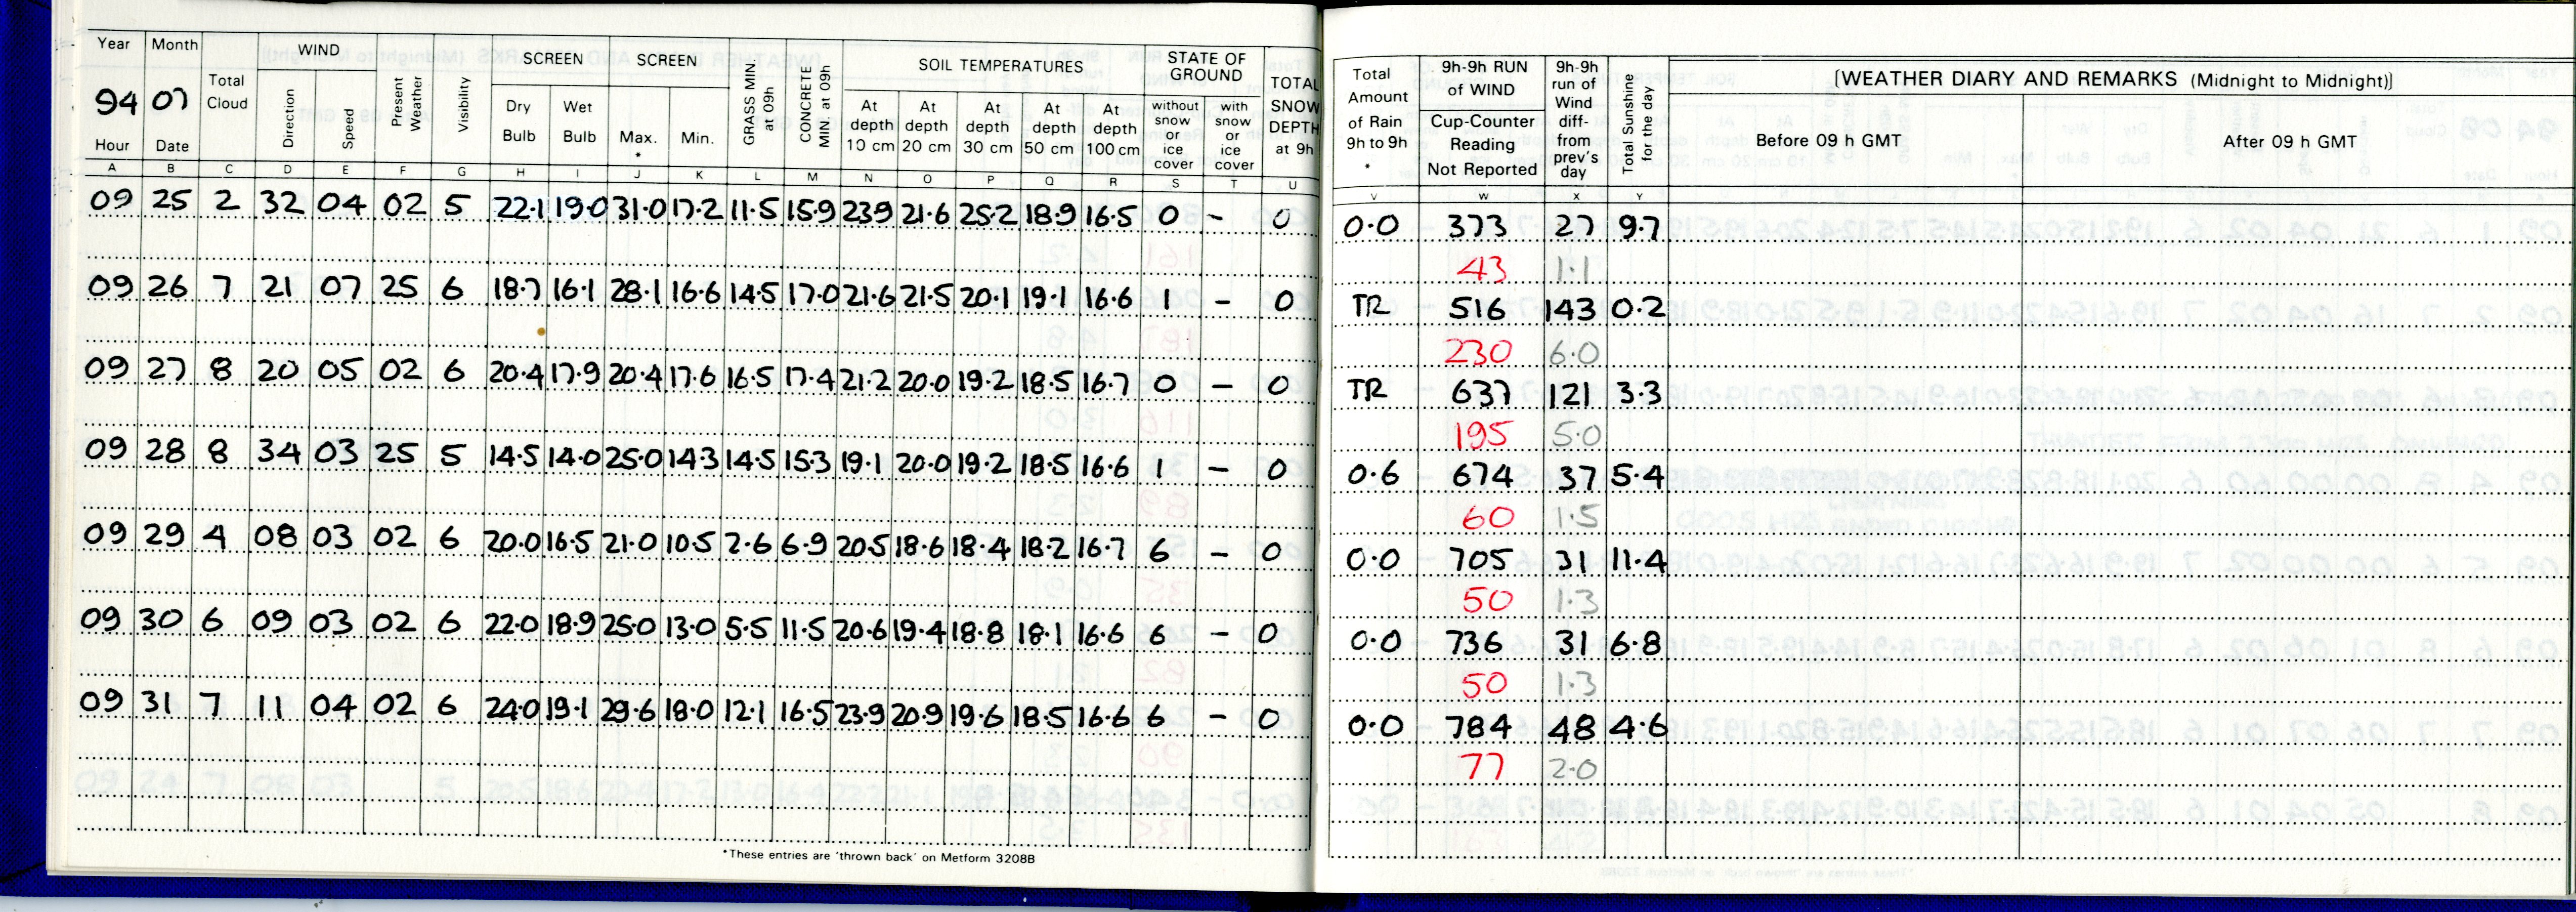 Year Month WIND SCREEN SCREEN SOIL TEMPERATURES STATE OF GROUND
94 07 Total Cloud Direction Speed Present Weather Visibility Dry Bulb Wet Bulb Max. * Min. GRASS MIN at 09h CONCRETE MIN. at 09h At depth 10 cm At depth 20 cm At depth 30 cm At depth 50 cm At depth 100 cm without snow or ice cover with snow or ice cover TOTAL SNOW DEPTH at 9h
Hour Date
A B C D E F G H I J K L M N O P Q R S T U
09 25 2 32 04 02 5 22.1 19.0 31.0 17.2 11.5 15.9 23.9 21.6 25.2 18.9 16.5 0 – 0
09 26 7 21 07 25 6 18.7 16.1 28.1 16.6 14.5 17.0 21.6 21.5 20.1 19.1 16.6 1 – 0
09 27 8 20 05 02 6 20.4 17.9 20.4 17.6 16.5 17.4 21.2 20.0 19.2 18.5 16.7 0 – 0
09 28 8 34 03 25 5 14.5 14.0 25.0 14.3 14.5 15.3 19.1 20.0 19.2 18.5 16.6 1 – 0
09 29 4 08 03 02 6 20.0 16.5 21.0 10.5 2.6 6.9 20.5 18.6 18.4 18.2 16.7 6 – 0
09 30 6 09 03 02 6 22.0 18.9 25.0 13.0 5.5 11.5 20.6 19.4 18.8 18.1 16.6 6 – 0
09 31 7 11 04 02 6 24.0 19.1 29.6 18.0 12.1 16.5 23.9 20.9 19.6 18.5 16.6 6 – 0
*These entries are 'thrown back' on Metform 3208B
Total Amount of Rain 9h to 9h * 9h-9h RUN of WIND Cup-Counter Reading Not Reported 9h-9h run of Wind diff- from prev's day Total Sunshine for the day [WEATHER DIARY AND REMARKS (Midnight to Midnight)]
Before 09 h GMT After 09 h GMT
V W X Y
0.0 373 27 9.7
43 1.1
TR 516 143 0.2
230 6.0
TR 637 121 3.3
195 5.0
0.6 674 37 5.4
60 1.5
0.0 705 31 11.4
50 1.3
0.0 736 31 6.8
50 1.3
0.0 784 48 4.6
77 2.0